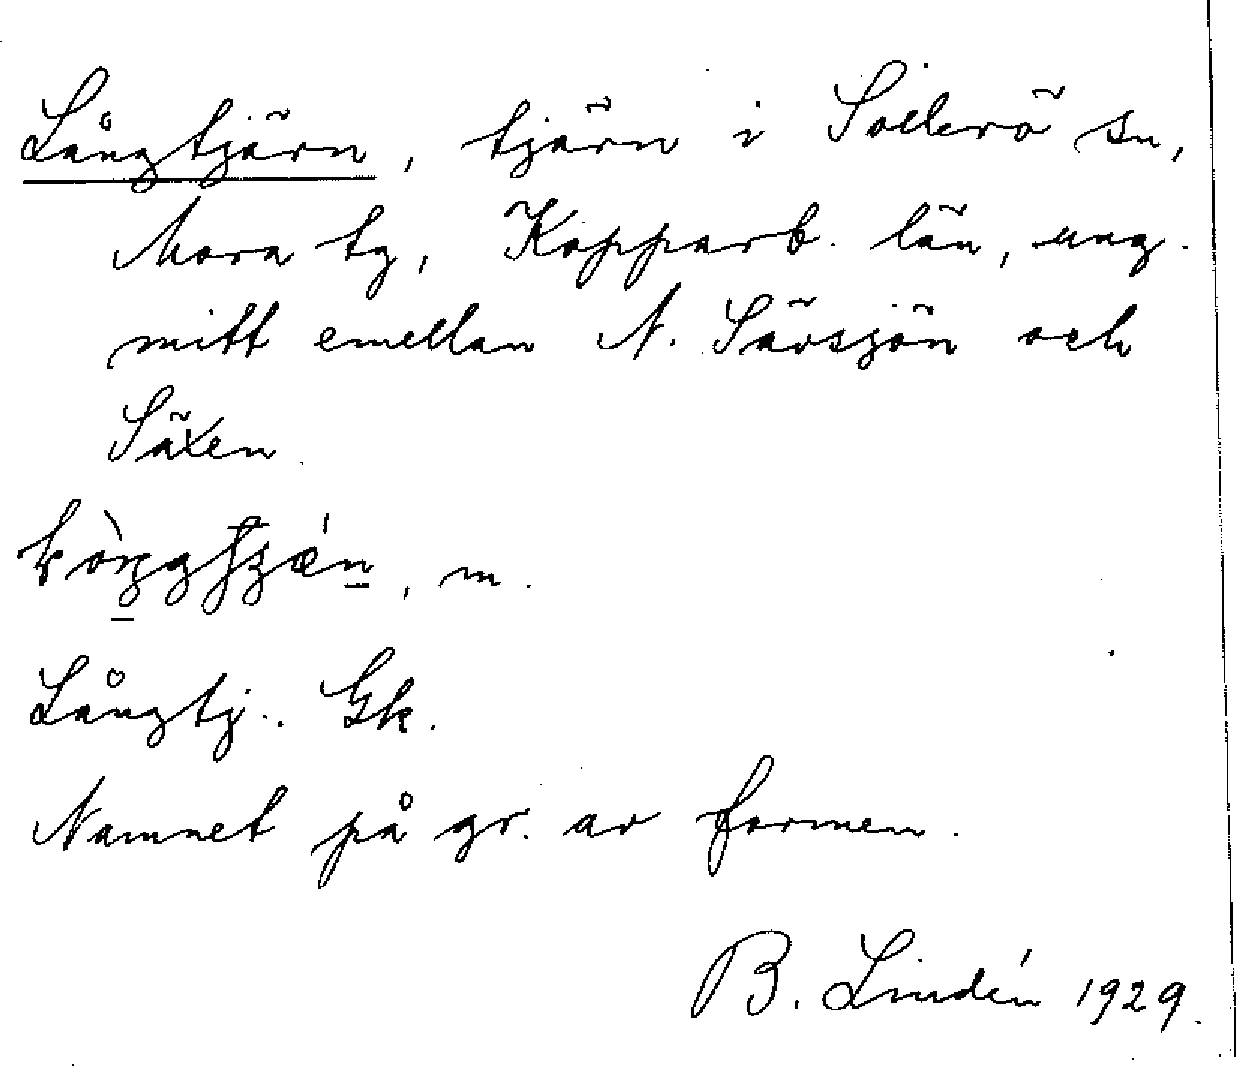 Långtjärn, tjärn i Sollerö sn,
Mora tg, Kopparb. län, ung.
mitt emellan N. Särsjön och
Säxen
, m.
Långtj.. Gk.
Namnet på gr. av formen.
B. Lindén 1929.